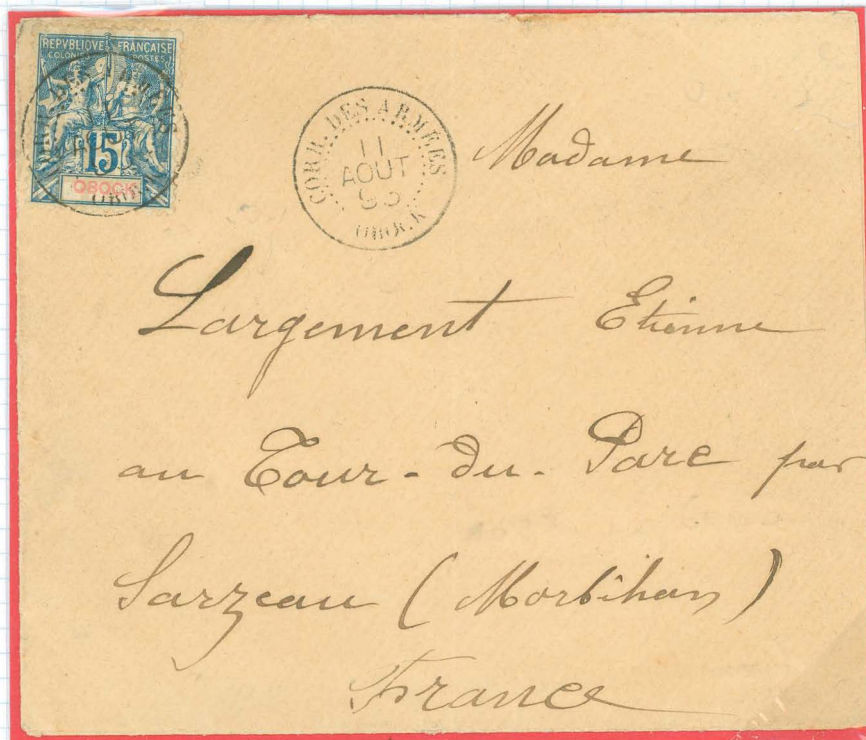 REPVBLIQVE FRANÇAISE
COLONIES POSTES
15
OBOCK
CORR. DES ARMÉES
OBOCK
CORR. DES ARMEES
11
AOUT
93
OBOCK
Madame
Largement Etienne
au Tour-du-Parc par
Sarzeau (Morbihan)
France